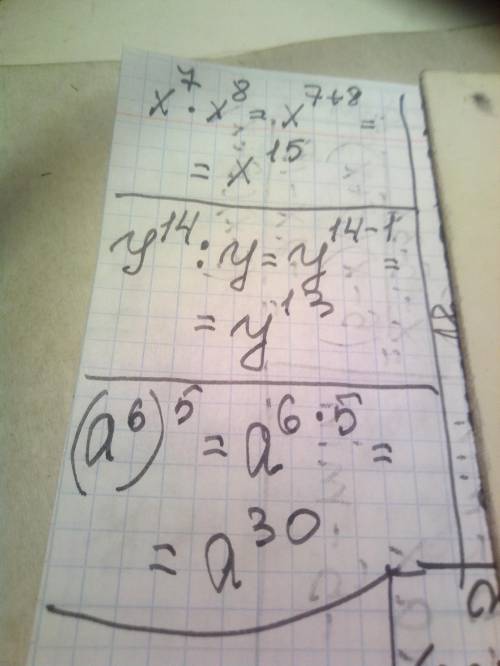 x⁷ · x⁸ = x⁷⁺⁸ =
= x¹⁵
y¹⁴ : y = y¹⁴⁻¹ =
= y¹³
(a⁶)⁵ = a⁶˙⁵ =
= a³⁰